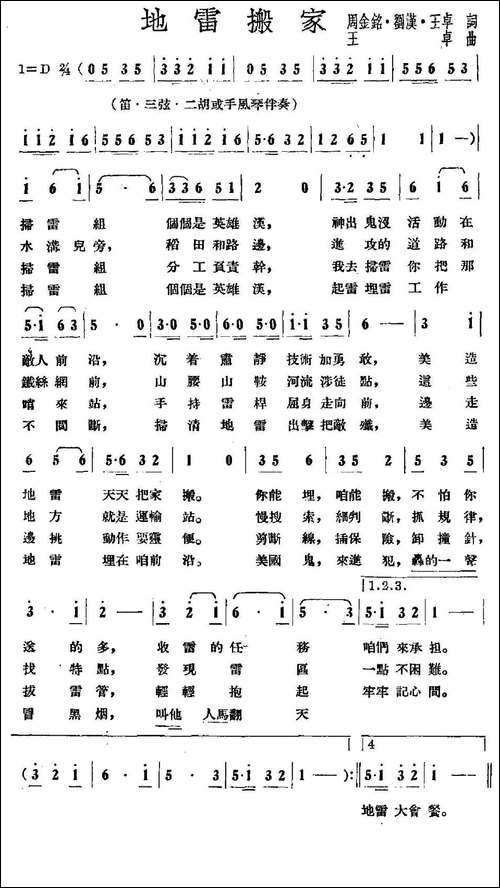 地雷搬家
周金銘·劉漢·王卓 詞
王卓 曲
1=D 2/4 (05 35 | 332 11 | 05 35 | 332 11 | 556 53 |
(笛·三弦·二胡或手風琴伴奏)
1121 6 | 5565 3 | 1121 6 | 5565 3 | 12 65 | 1 1 | 1—) |
1 61 | 5·6 | 336 51 | 2 0 | 3·2 35 | 6 1 1 |
掃雷組 個個是英雄漢, 神出鬼沒 活動在
水溝兒旁, 稻田和路邊, 進攻的道路和
掃雷組 分工負責幹, 我去掃雷你把那
掃雷組 個個是英雄漢, 起雷埋雷工作
5·1 63 | 5·0 | 3·0 5·0 | 5·0 5·0 | 1·1 35 | 6— | 3 1 |
敵人前沿, 沉着肅靜 技術加勇敢, 美造
鐵絲網前, 山腰山鞍 河流涉徒點, 這些
哨來站, 手持雷桿 屈身走向前, 邊走
不間斷, 掃清地雷 出擊把敵殲, 美造
6 56 | 5·6 32 | 1 0 | 35 6 | 35 2 | 5 35 |
地雷 天天把家搬。 你能埋,咱能搬,不怕你
地方 就是運輸站。 慢搜索,細判斷,抓規律,
邊挑 動作要靈便。 剪斷線,插保險,卸撞針,
地雷 埋在咱前沿。 美國鬼,來進犯,轟的一聲
1.2.3.
3·1 | 2— | 3 21 | 6·1 | 5·3 | 5·1 32 |
送的多, 收雷的任務 咱們來承担。
找特點, 發現雷區 一點不困難。
拔雷管, 輕輕抱起 牢牢記心間。
冒黑烟, 叫他人馬翻天
4
(3 21 | 6·1 | 5·3 | 5·1 32 | 1—) :‖ 5·1 32 | 1— ‖
地雷大會餐。